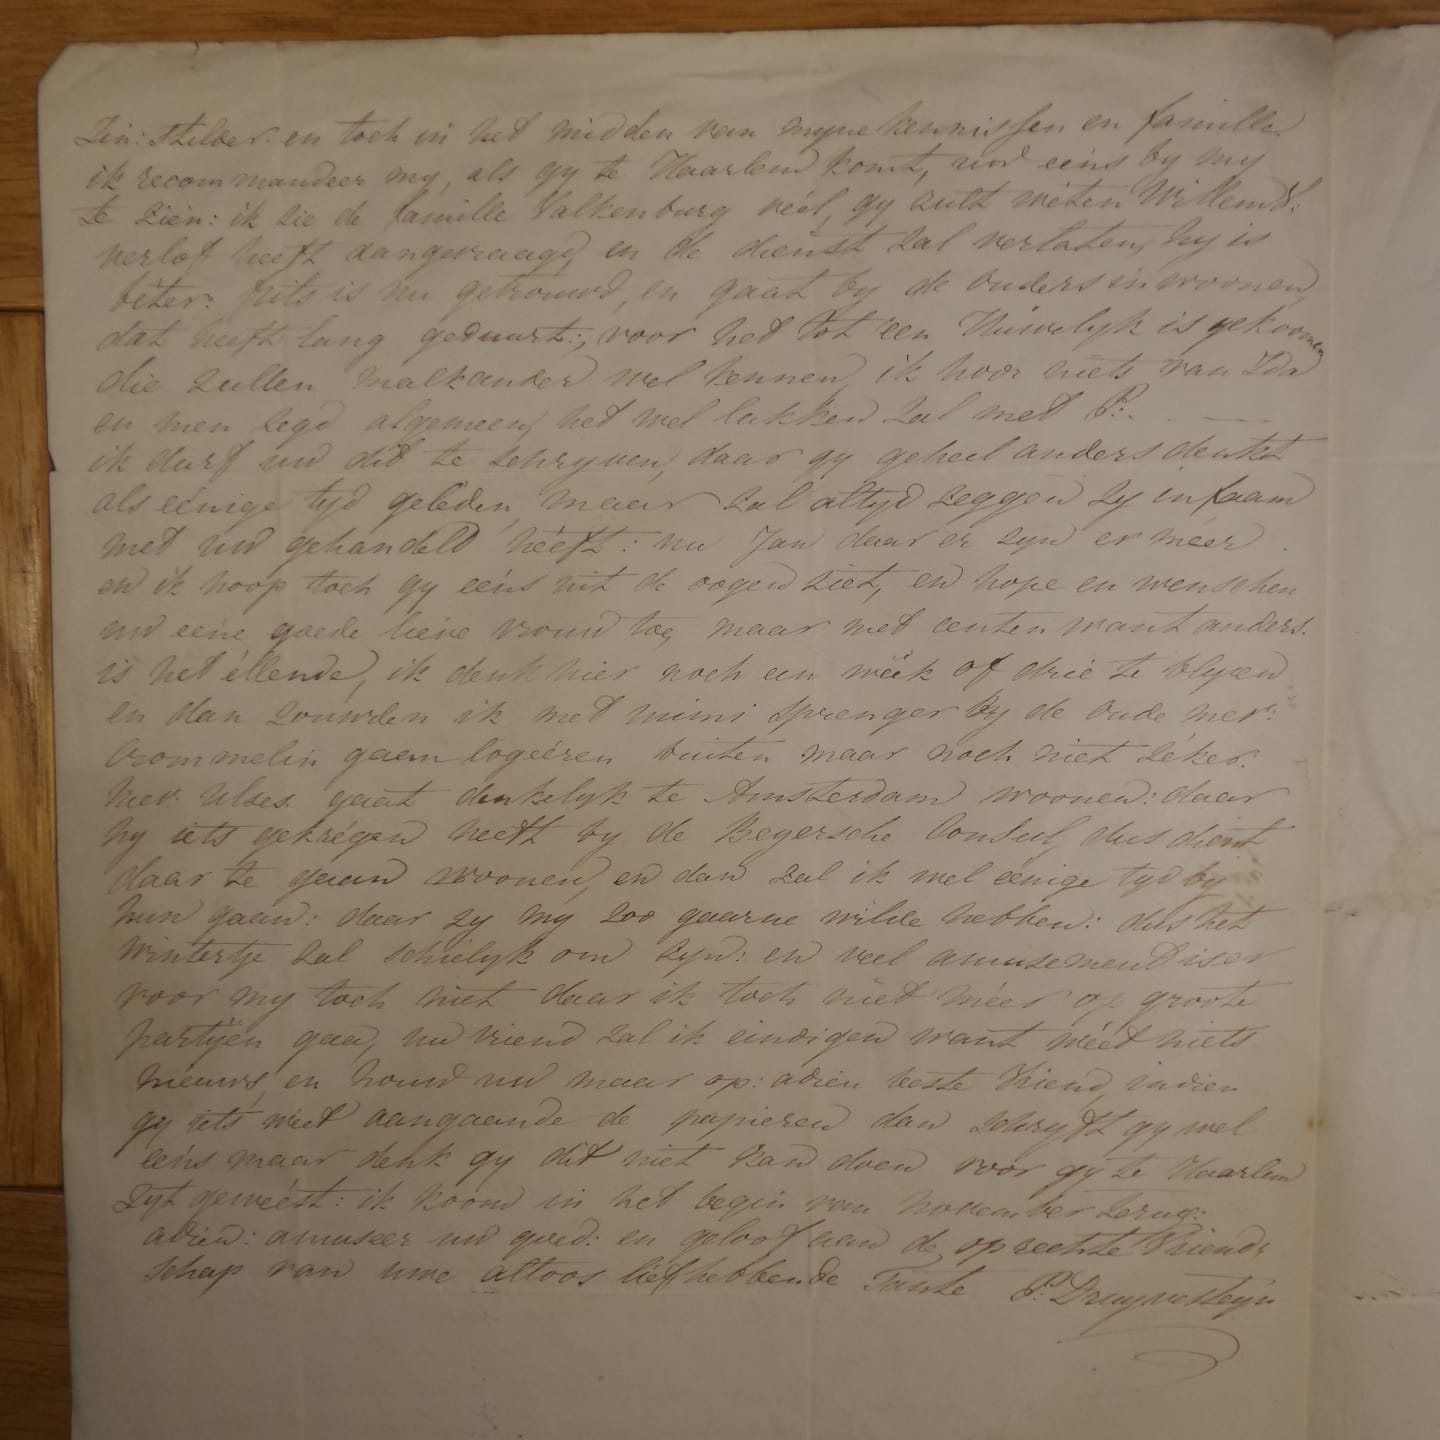 Zin: stilder. en toch in het midden van myne kennissen en famille.
ik recommandeer my, als gy te Haarlem komt, uw eéns by my
te zién: ik zie de famille Valkenburg véél, gy zult wéten Willem
verlof heeft aangevraagd, en de dienst zal verlaten, hy is
béter: frits is nu getrouwd, en gaat by de ouders inwoonen,
dat heeft lang geduurt:, voor het tot een Huwelyk is gekoomen
die zullen malkander wel kennen, ik hoor niets van Ida
en men zegd algemeen, het wel lukken zal met P:.
ik durf uw dit te schryven, daar gy geheel anders denkt
als eénige tyd geleden, maar zal altyd zeggen zy infaam
met uw gehandeld heéft: nu Jan daar er zyn er méer
en ik hoop toch gy eéns uit de oogen ziet, en hope en wenschen
uw eene goede lieve vrouw toe, maar met centen want anders.
is het éllende, ik denk hier noch een wéék of drié te blyven
en dan zouwden ik met mimi Sprenger by de oude mevr:
Crommelin gaan logéeren buiten maar noch niet zéker.
Mevr: Ulses gaat denkelyk te Amsterdam woonen: daar
hy iets gekrégen heeft by de Beyersche Consul, dus dient
daar te gaan woonen, en dan zal ik wel eénige tyd by
hun gaan: daar zy my zoo gaarne wilde hebben: dus het
wintertje zal schielyk om zyn: en veel amusement is er
voor my toch niet daar ik toch niet méer op groote
partyen gaa, nu vriend zal ik eindigen want wéet niets
nieuws, en houd uw maar op: adieu beste Vriend, indien
gy iets weet aangaande de papieren dan schryft gy wel
eéns maar denk gy dit niet kan doen voor gy te Haarlem
zyt gewéest: ik koom in het begin van november terug:
adieu: amuseer uw goed: en geloof aan de oprechte Vriend-
schap van uwe altoos liefhebbende Tante P: Druyvesteyn